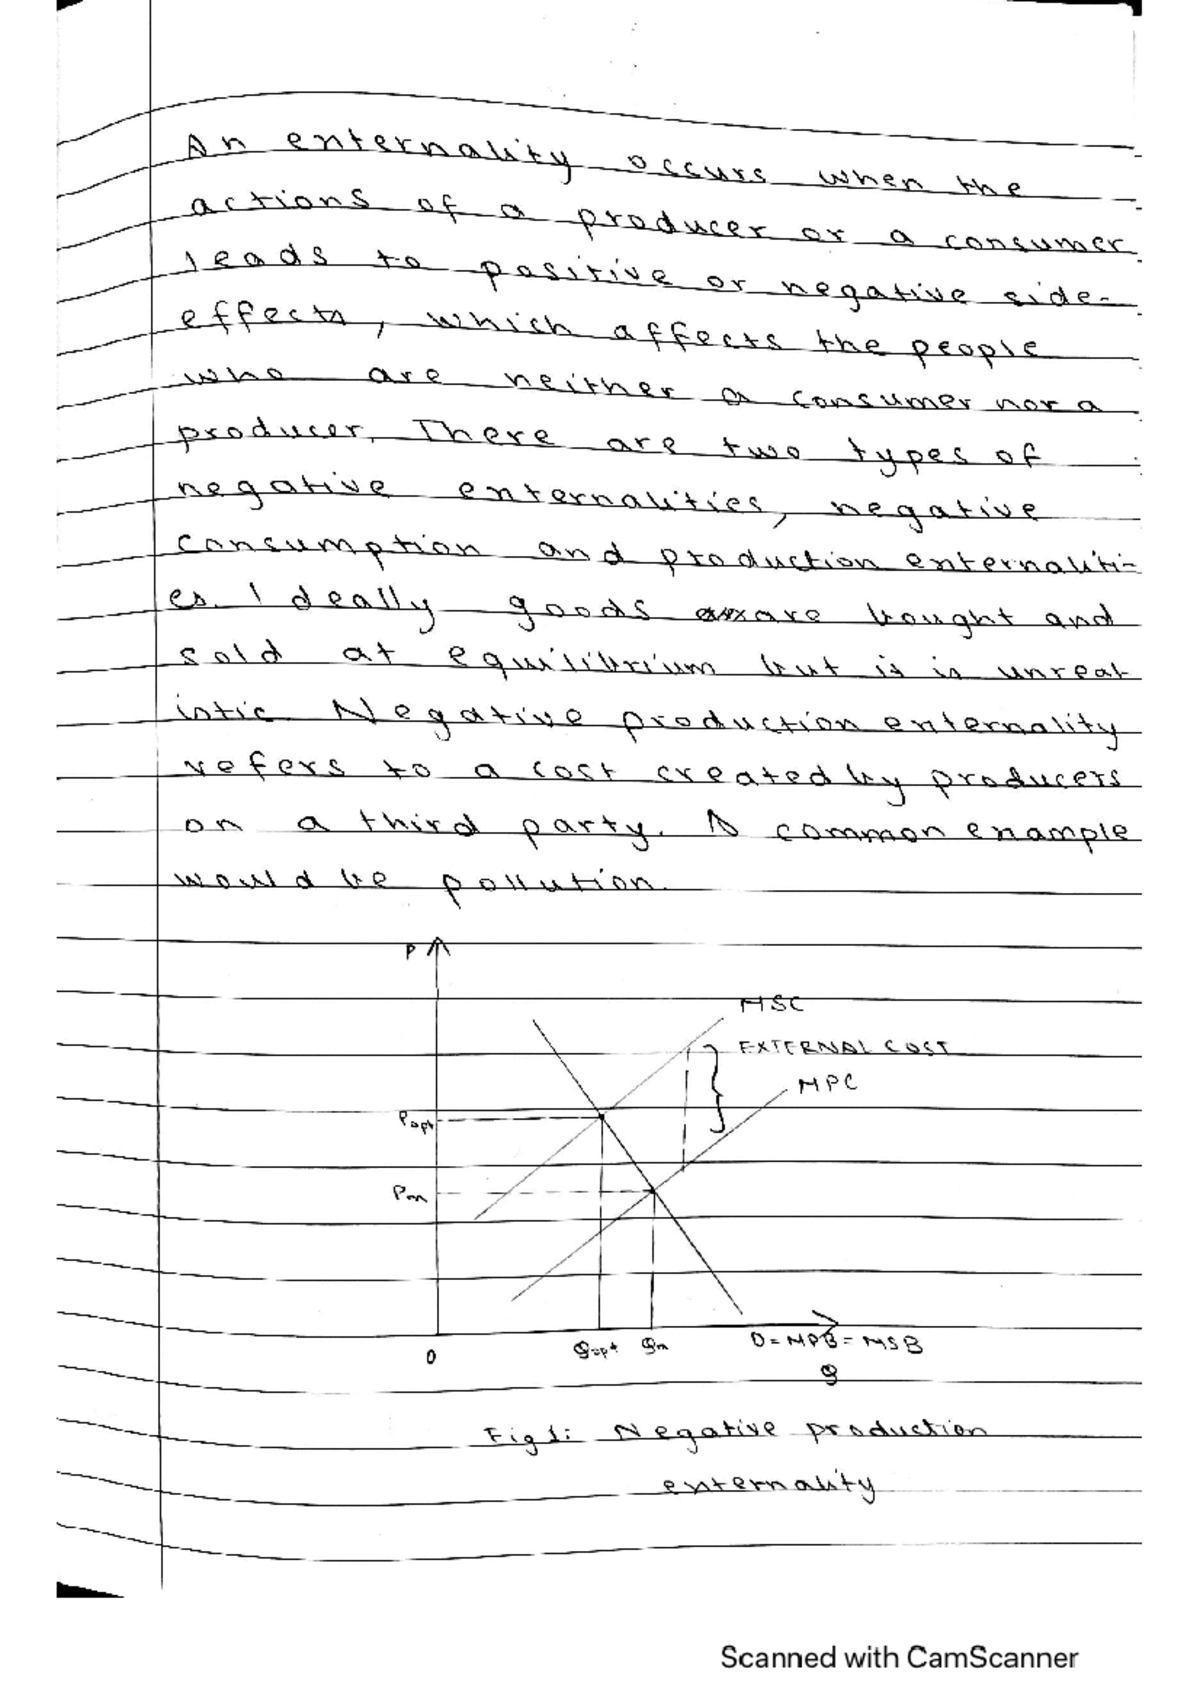 An externality occurs when the
actions of a producer or a consumer
leads to positive or negative side-
effects, which affects the people
who are neither a consumer nor a
producer. There are two types of
negative externalities, negative
consumption and production externaliti-
es. Ideally goods are bought and
sold at equilibrium but it is unreal
istic. Negative production externality
refers to a cost created by producers
on a third party. A common example
would be pollution.
P
MSC
EXTERNAL COST
MPC
Popt
Pm
0
Qopt Qm D=MPB=MSB
Q
Fig 1: Negative production
externality
Scanned with CamScanner